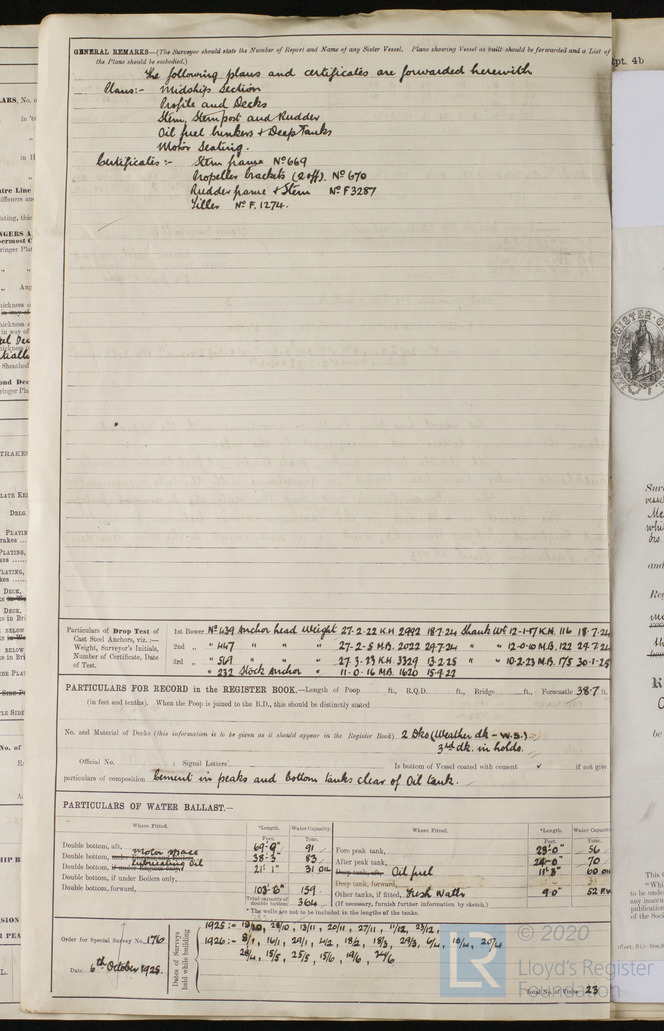 GENERAL REMARKS—(The Surveyor should state the Number of Report and Name of any Sister Vessel. Plans showing Vessel as built should be forwarded and a List of
the Plans should be embodied.)
The following plans and certificates are forwarded herewith
Plans:- Midships Section
Profile and Decks
Stem, Sternpost and Rudder
Oil fuel bunkers + Deep Tanks
Motor Seating.
Certificates:- Stern frame No 669
Propeller brackets (2 off). No 670
Rudder frame + Stem No F3287
Tiller No F.1274.
Particulars of Drop Test of
Cast Steel Anchors, viz.:—
Weight, Surveyor's Initials,
Number of Certificate, Date
of Test.
1st Bower No 439 Anchor head Weight 27-2-22 K.H 2992 18.7.24 Shank Wt 12-1-17 K.H. 116 18.7.24
2nd „ " 447 " " " 27-2-5 M.B. 2022 29.7.24 " " 12-0-10 M.B. 122 29.7.24
3rd „ " 569 " " " 27.3.23 K.H. 3329 13.2.25 " " 10-2-23 M.B. 175 30.1.25
" 232 Stock Anchor " 11-0-16 M.B. 1620 15.9.22
PARTICULARS FOR RECORD in the REGISTER BOOK.—Length of Poop ft., R.Q.D. ft., Bridge ft., Forecastle 38.7 ft.
(in feet and tenths). When the Poop is joined to the B.D., this should be distinctly stated
No. and Material of Decks (this information is to be given as it should appear in the Register Book) 2 Dks (Weather dk - W.S.)
3rd dk. in holds.
Official No. ; Signal Letters Is bottom of Vessel coated with cement ✓ if not give
particulars of composition Cement in peaks and bottom tanks clear of Oil tank.
PARTICULARS OF WATER BALLAST.—
Where Fitted. *Length. Water Capacity. Where Fitted. *Length. Water Capacity
Feet. Tons. Feet. Tons.
Double bottom, aft, 69'-9" 91 Fore peak tank, 23'-0" 56
Double bottom, motor space 38'-3" 83 After peak tank, 24'-0" 70
Double bottom, lubricating Oil 21' 1" 31 OIL Deep tank, aft, Oil fuel 11'-8" 60 OIL
Double bottom, if under Boilers only, Deep tank, forward,
Double bottom, forward, 103'-6" 159 Other tanks, if fitted, Fresh Water 9-0" 52 F.W
Total capacity of double bottom 364 (If necessary, furnish further information by sketch.)
* The wells are not to be included in the lengths of the tanks.
Order for Special Survey No. 1716
Date 6th October 1925.
Dates of Surveys
held while building
1925:- 28/10, 13/11, 20/11, 27/11, 11/12, 23/12,
1926:- 14/1, 20/1, 4/2, 18/2, 18/3, 29/3, 20/4
15/5, 25/5, 15/6, 19/6, 24/6
Total No. of Visits 23
© 2020
LR
Lloyd's Register
Foundation
Rpt. 4b